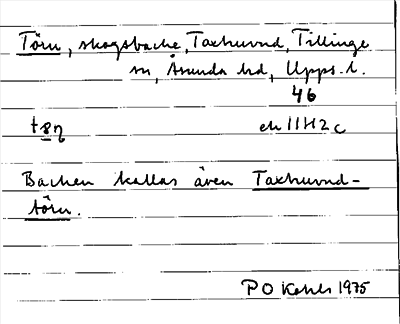 Törn, skogsbacke, Taxhuvud, Tillinge
sn, Åsunda hd, Upps. l.
46
ek 11H2c
Backen kallas även Taxhuvud-
törn.
P O 1975